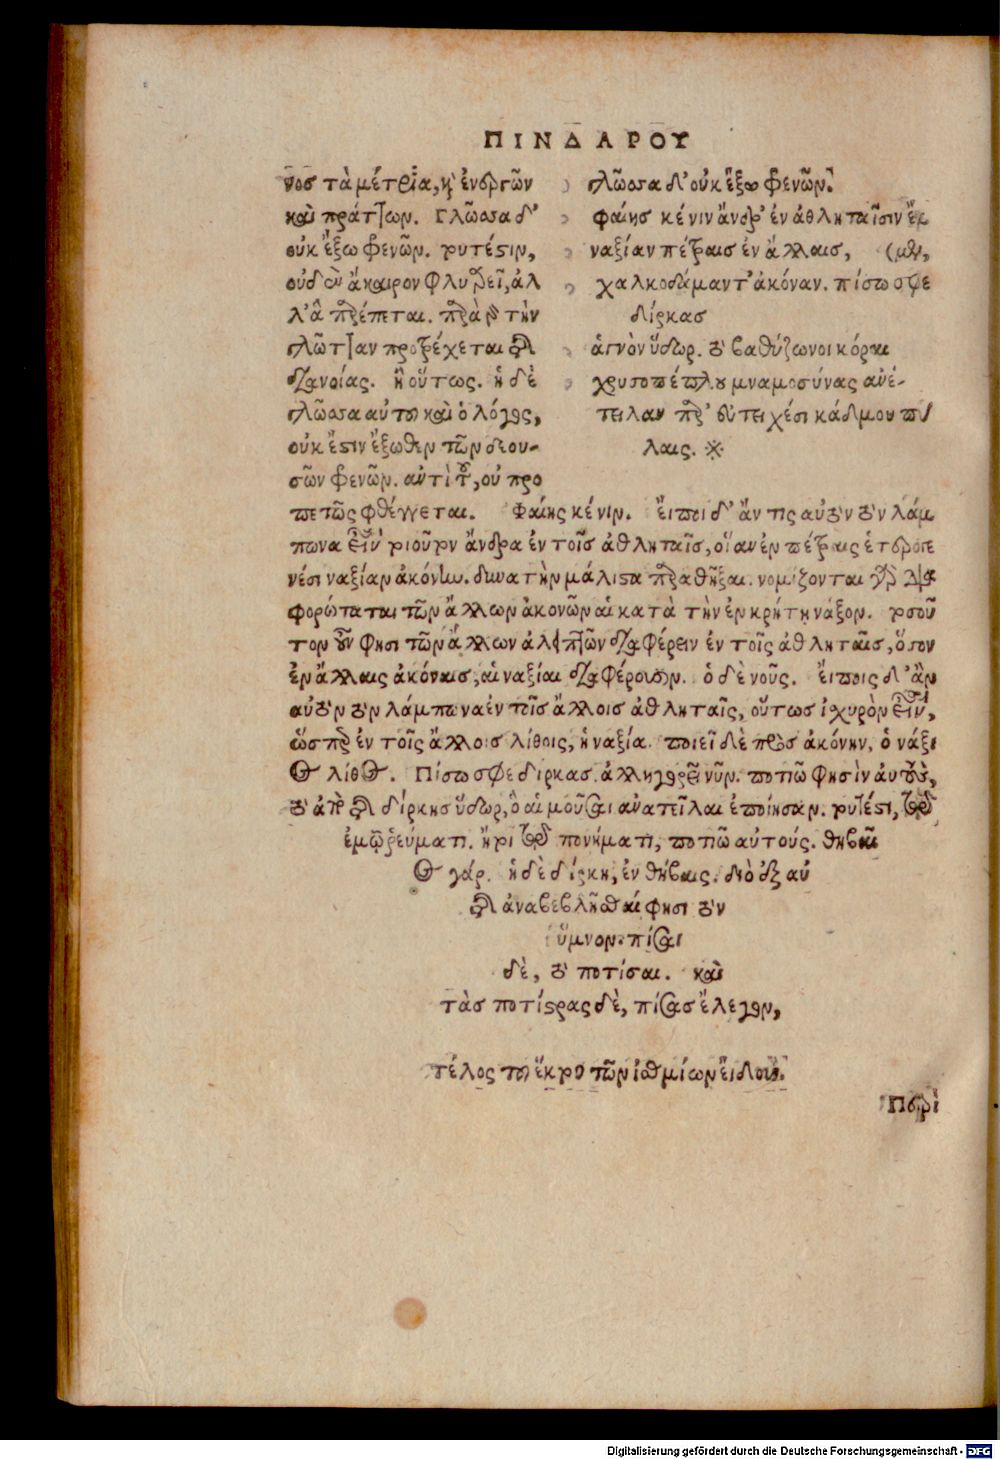 ΠΙΝΔΑΡΟΥ
νος τὰ μέτρια, καὶ ἐνεργῶν
καὶ πράττων. Γλῶσσα δ'
οὐκ ἔξω φρενῶν. τουτέστιν,
οὐδὲν ἄκαιρον φλυαρεῖ, ἀλ
λ' ἃ πρέπεται. παρὰ τὴν
γλῶτταν προτρέχεται τῆς
διανοίας. ἢ οὕτως. ἡ δὲ
γλῶσσα αὐτοῦ καὶ ὁ λόγος,
οὐκ ἔστιν ἔξωθεν τῶν
σῶν φρενῶν. ἀντὶ τοῦ, οὐ προ
γλῶσσα δ' οὐκ ἔξω φρενῶν.
φαίης κέ νιν ἄνδρ' ἐν ἀθληταῖσιν ἔμ
ναξίαν πέτραις ἐν ἄλλαις, (μεν,
χαλκοδάμαντ' ἀκόναν. πίσω σφε
δίρκας
ἁγνὸν ὕδωρ. τὸ βαθύζωνοι κόραι
χρυσοπέπλου μναμοσύνας ἀνέ-
τειλαν παρ' εὐτειχέσι κάδμου πύ
λαις. ※
πετῶς φθέγγεται. Φαίης κέ νιν. εἴποι δ' ἄν τις αὐτὸν τὸν λάμ
πωνα εἶναι τοιοῦτον ἄνδρα ἐν τοῖς ἀθληταῖς, οἵαν ἐν πέτραις ἑτέραις
νέσι ναξίαν ἀκόνην. δυνατὴν μάλιστα παραθῆξαι. νομίζονται γὰρ διαφ
φορώταται τῶν ἄλλων ἀκονῶν αἱ κατὰ τὴν ἐν κρήτῃ νάξον. τοσοῦ
τον οὖν φησι τῶν ἄλλων ἀλειπτῶν διαφέρειν ἐν τοῖς ἀθληταῖς, ὅσον
ἐν ἄλλαις ἀκόναις, αἱ ναξίαι διαφέρουσιν. ὁ δὲ νοῦς. εἴποις δ' ἂν
αὐτὸν τὸν λάμπωνα ἐν τοῖς ἄλλοις ἀθληταῖς, οὕτως ἰχυρὸν εἶναι,
ὥσπερ ἐν τοῖς ἄλλοις λίθοις, ἡ ναξία. ποιεῖ δὲ πρὸς ἀκόνην, ὁ νάξι
ος λίθος. Πίσω σφε δίρκας. ἀλληγορεῖ νῦν. ποτιῶ φησὶν αὐτοὺς,
τὸ ἀπὸ τῆς δίρκης ὕδωρ, ὃ αἱ μοῦσαι ἀνατεῖλαι ἐποίησαν. τουτέστι, τῷ
ἐμῷ ῥεύματι. ἤτοι τῷ πονήματι, ποτιῶ αὐτούς. θηβαῖ
ος γάρ. ἡ δὲ δίρκη, ἐν θήβαις. διὸ ἐξ αὐ
τῆς ἀναβεβλῆσθαί φησι τὸν
ὕμνον. πίσαι
δὲ, τὸ ποτίσαι. καὶ
τὰς ποτίστρας δὲ, πίσας ἔλεγον,
τέλος τοῦ ἕκτου τῶν ἰσθμίων εἴδους.
Περὶ
Digitalisierung gefördert durch die Deutsche Forschungsgemeinschaft - DFG